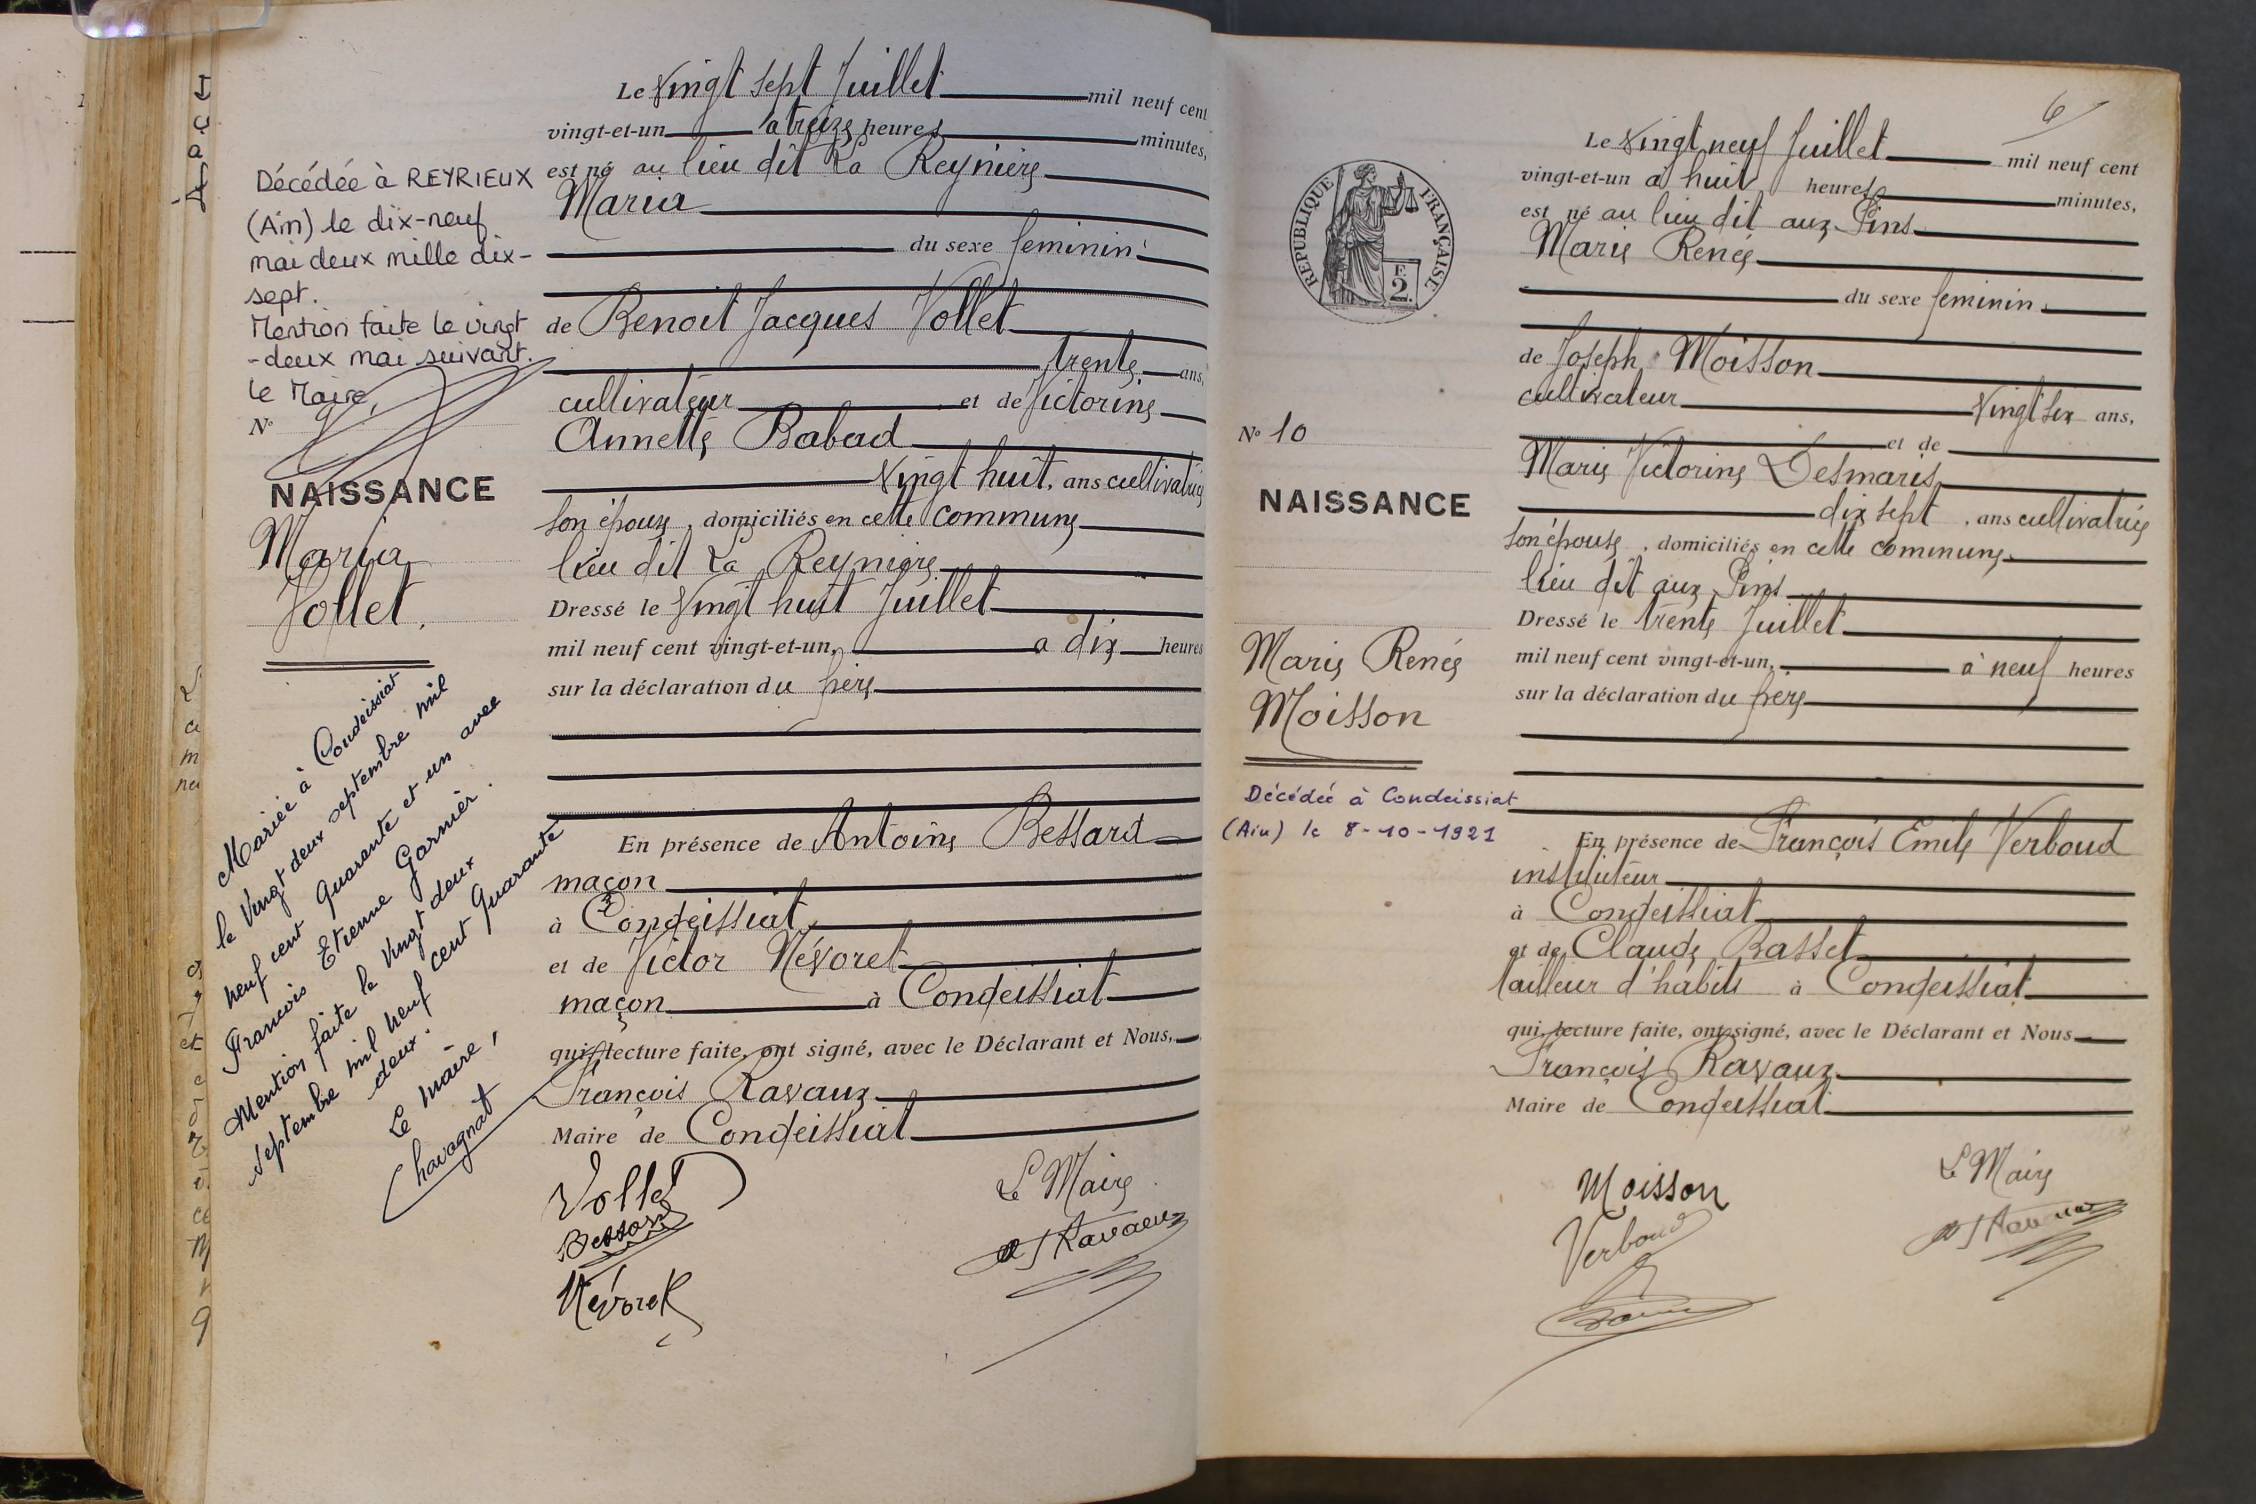 Décédée à REYRIEUX
(Ain) le dix-neuf
mai deux mille dix-
sept.
Mention faite le vingt
-deux mai suivant.
le Maire,
N°
NAISSANCE
Maria
Vollet.
Mariée à Condeissiat
le Vingt deux septembre mil
neuf cent quarante et un avec
Francois Etienne Garnier.
Mention faite le Vingt deux
septembre mil neuf cent quarante
deux.
Le Maire,
Chavagnat
Le Vingt sept Juillet mil neuf cent
vingt-et-un à treize heures minutes,
est né au lieu dit La Reynière
Maria
du sexe feminin
de Benoit Jacques Vollet
trente ans,
cultivateur et de Victorine
Annette Babad
Vingt huit, ans cultivatrice
son épouse, domiciliés en cette commune
lieu dit La Reynière
Dressé le Vingt huit Juillet
mil neuf cent vingt-et-un, a dix heures
sur la déclaration du père
En présence de Antoine Bessard
maçon
à Condeissiat
et de Victor Névoret
maçon à Condeissiat
qui, lecture faite, ont signé, avec le Déclarant et Nous,
François Ravaux
Maire de Condeissiat
Vollet
Bessard
Névoret
Le Maire
Ravaux
6
REPUBLIQUE FRANÇAISE
2
N° 10
NAISSANCE
Marie Renée
Moisson
Décédée à Condeissiat
(Ain) le 8-10-1921
Le Vingt neuf Juillet mil neuf cent
vingt-et-un à huit heures minutes,
est né au lieu dit aux Pins
Marie Renée
du sexe feminin
de Joseph Moisson
cultivateur Vingt six ans,
et de
Marie Victorine Desmaris
dix sept, ans cultivatrice
son épouse, domiciliés en cette commune
lieu dit aux Pins
Dressé le trente Juillet
mil neuf cent vingt-et-un, à neuf heures
sur la déclaration du père
En présence de François Emile Verboud
instituteur
à Condeissiat
et de Claude Basset
tailleur d'habits à Condeissiat
qui, lecture faite, ont signé, avec le Déclarant et Nous
François Ravaux
Maire de Condeissiat
Moisson
Verboud
Le Maire
Ravaux